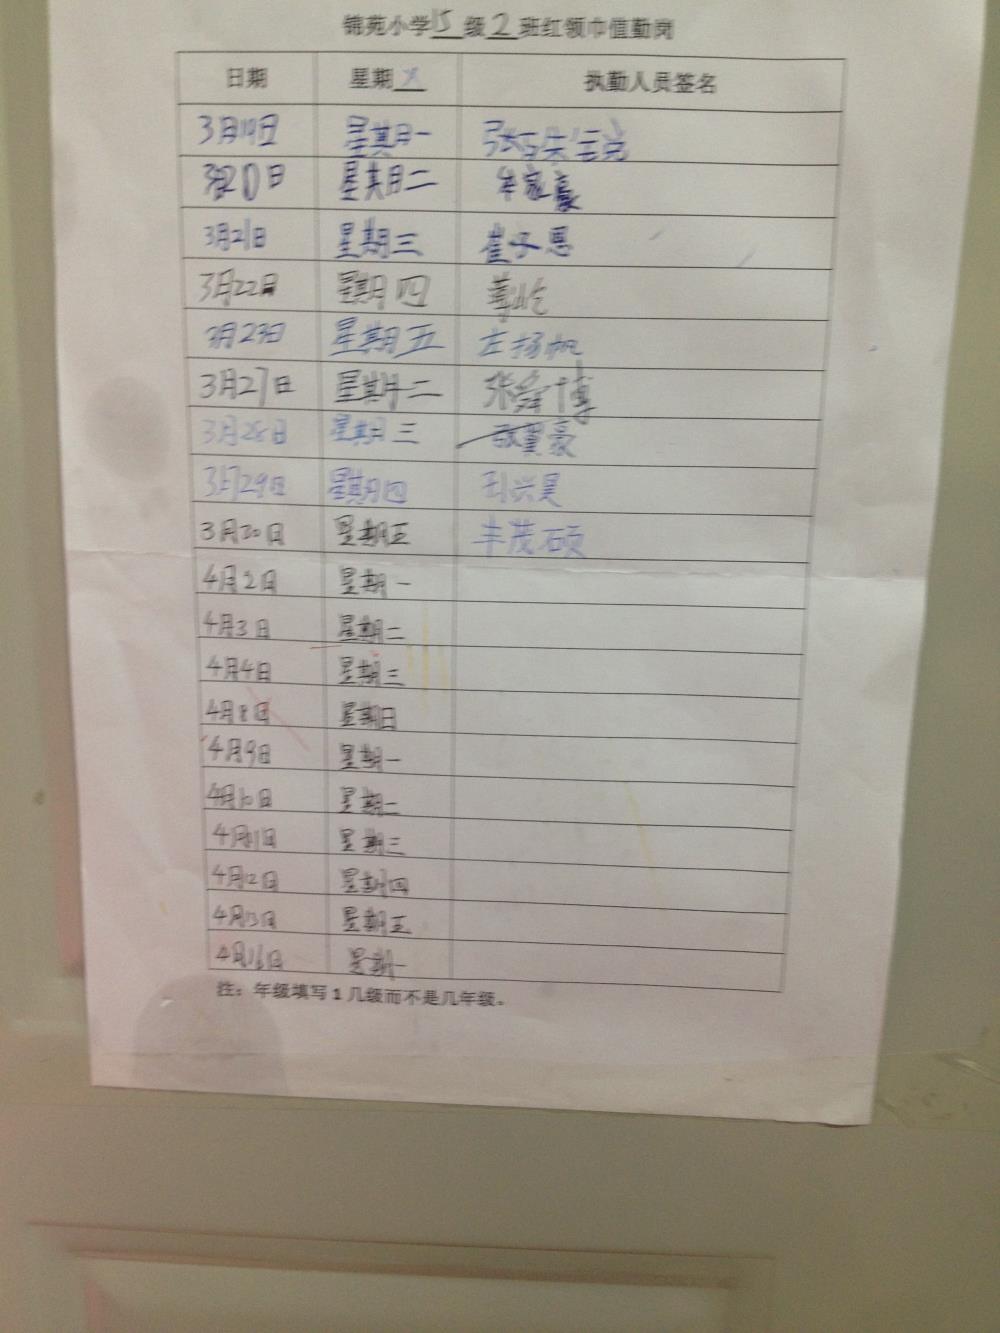 锦苑小学15级2班红领巾值勤岗
日期 星期X 执勤人员签名
3月19日 星期一
3月20日 星期二 牟家豪
3月21日 星期三 崔子恩
3月22日 星期四 李屹
3月23日 星期五 左扬帆
3月27日 星期二 张舜博
3月28日 星期三 翼豪
3月29日 星期四 孙兴昊
3月30日 星期五 丰茂硕
4月2日 星期一
4月3日 星期二
4月4日 星期三
4月8日 星期日
4月9日 星期一
4月10日 星期二
4月11日 星期三
4月12日 星期四
4月13日 星期五
4月16日 星期一
注：年级填写1几级而不是几年级。